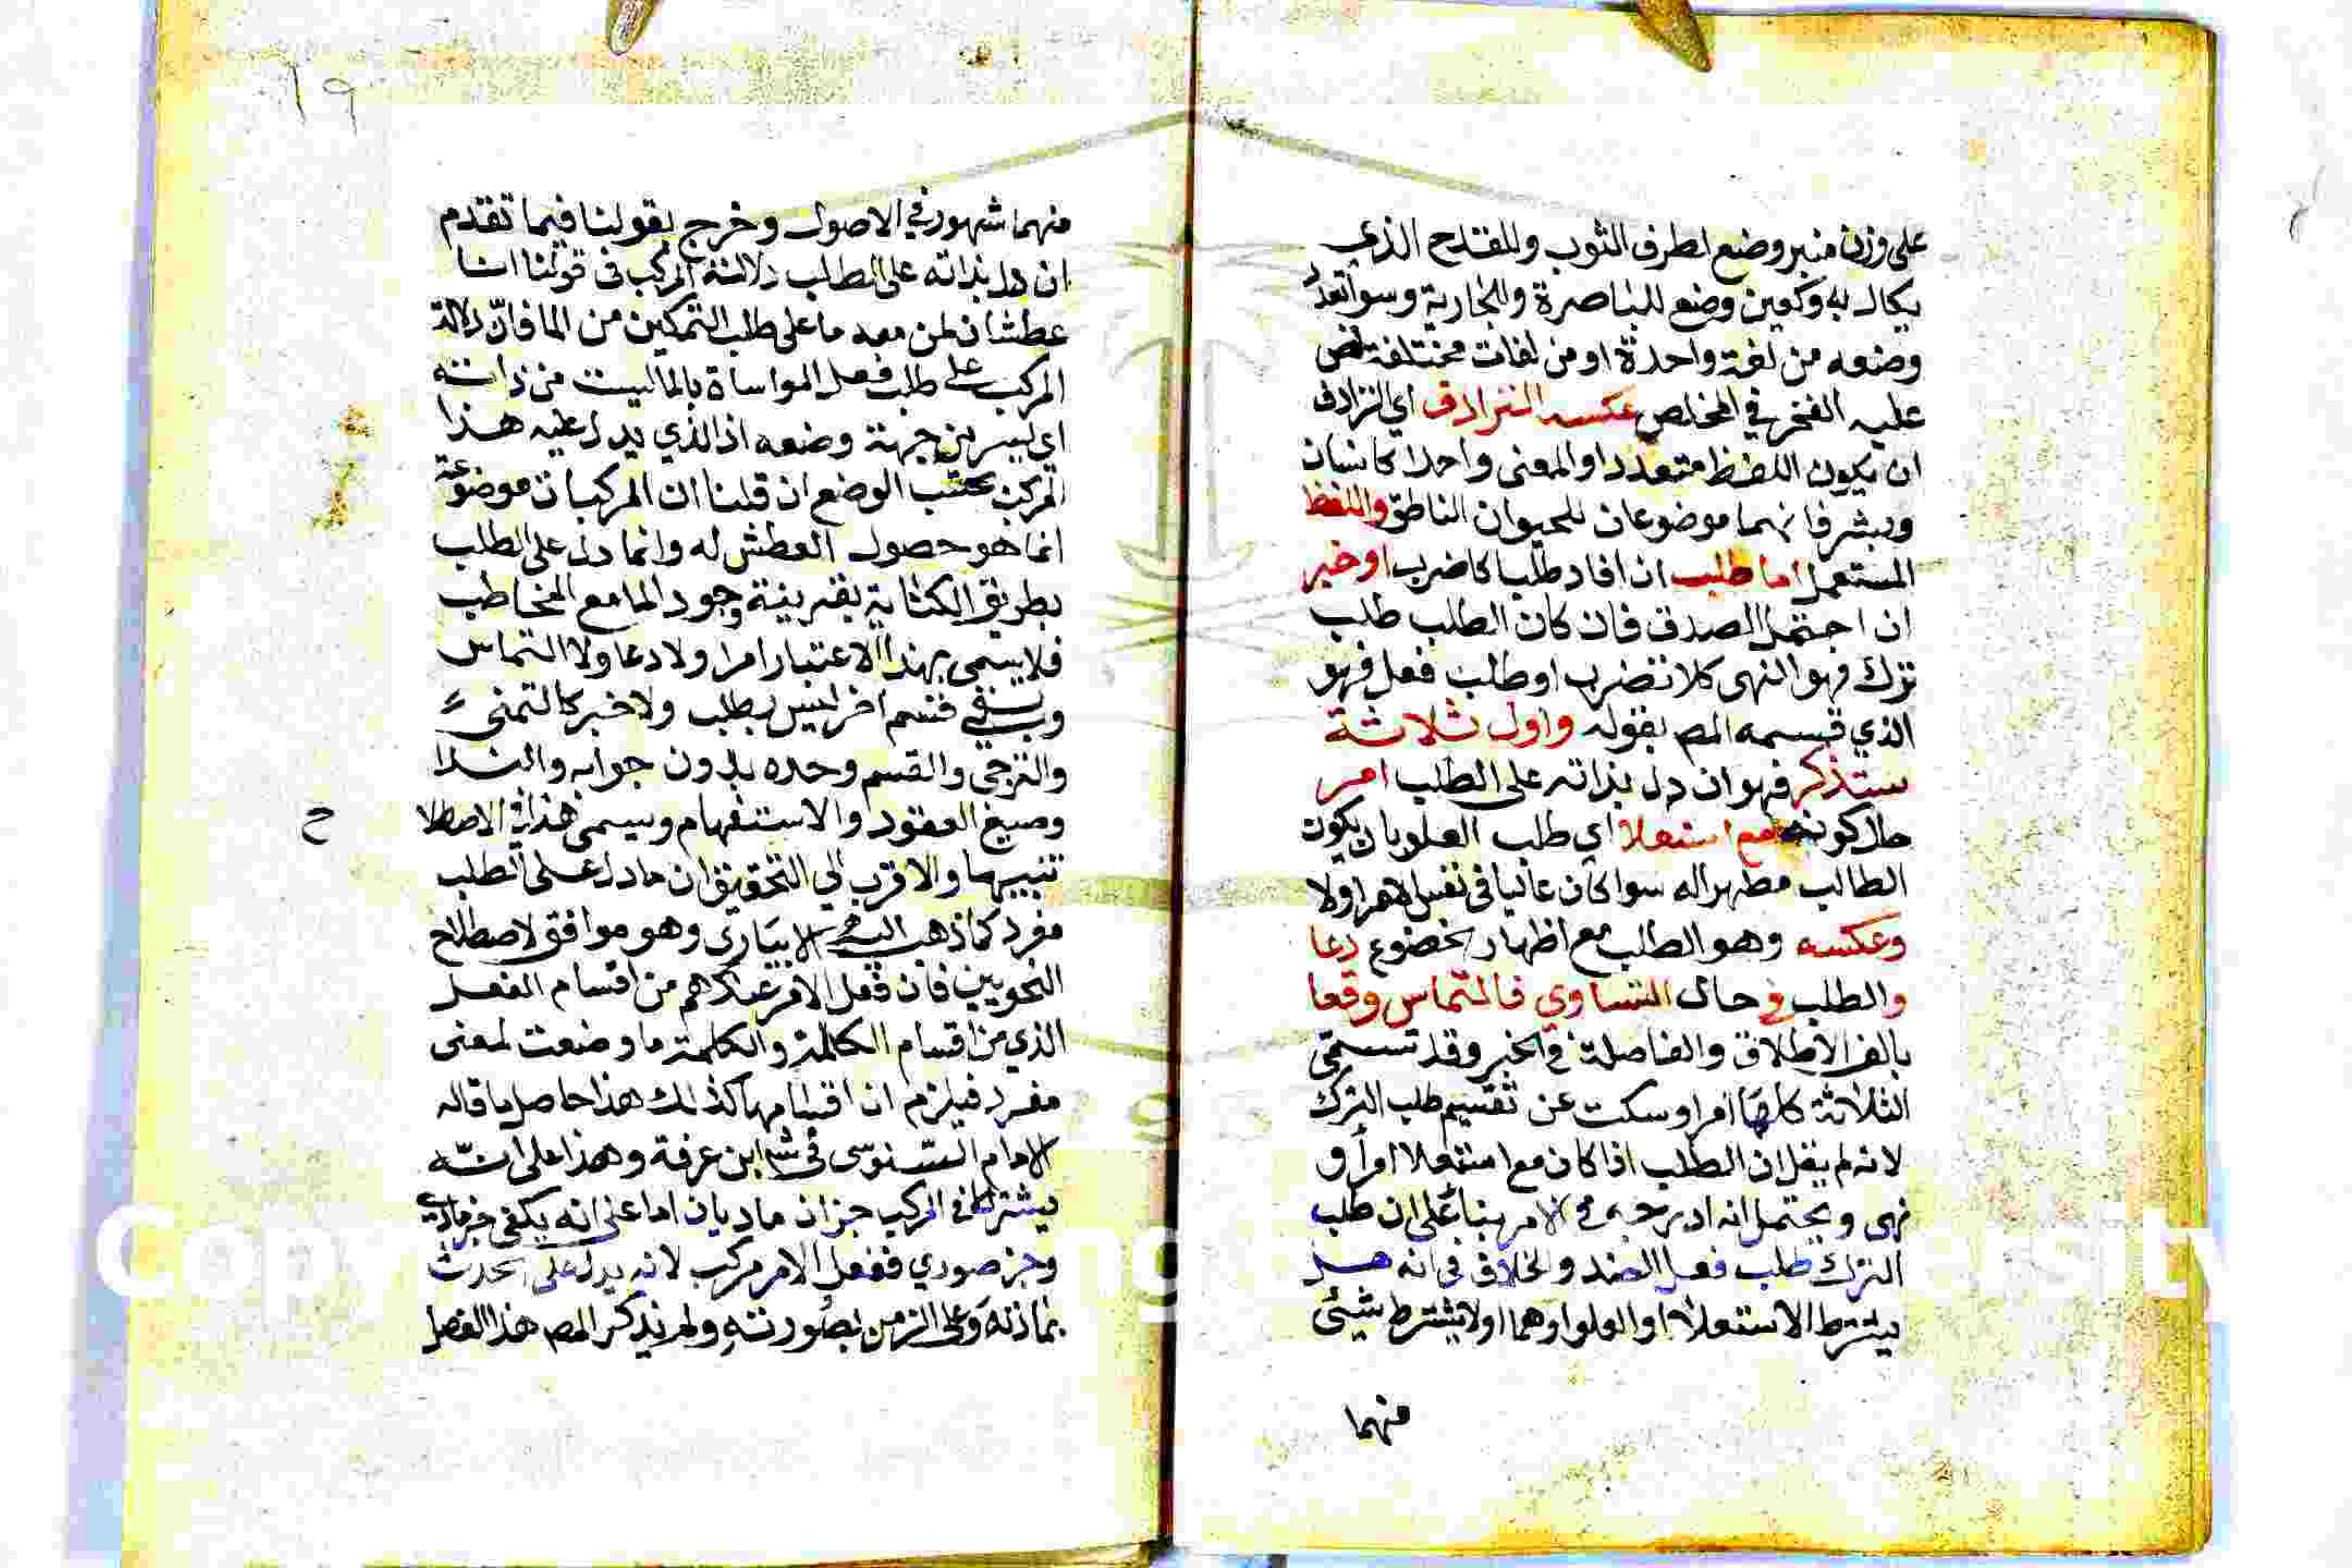 على وزن منبر وضع لطرف الثوب وللقدح الذي
يكال به وكعين وضع للباصرة والجارية وسوا تعدد
وضعه من لغة واحدة او من لغات مختلفة نص
عليه الفخر في المخلص عكسه الترادف اي الترادف
ان يكون اللفظ متعددا والمعنى واحدا كانسان
وبشر فانهما موضوعان للحيوان الناطق واللفظ
المستعمل اما طلب ان افاد طلبا كاضرب او خبر
ان احتمل الصدق فان كان الطلب طلب
ترك فهو النهى كلا تضرب او طلب فعل فهو
الذي قسمه المص بقوله واول ثلاثة
ستذكر فهو ان دل بذاته على الطلب امر
حال كونه مع استعلا اي طلب العلو بان يكون
الطالب مظهرا له سوا كان عاليا في نفس الامر اولا
وعكسه وهو الطلب مع اظهار خضوع دعا
والطلب في حال التساوي فالتماس وقعا
بالف الاطلاق والفاصلة في الخبر وقد تسمى
الثلاثة كلها امرا وسكت عن تقسيم طلب الترك
لانه لم يقل ان الطلب اذا كان مع استعلا امر او
نهى ويحتمل انه ادرجه في الامر بنا على ان طلب
الترك طلب فعل الضد والخلاف في انه هل
يشترط الاستعلا او العلو او هما اولا يشترط شيئ
منهما
١٩
منهما شهور في الاصول وخرج بقولنا فيما تقدم
ان دل بذاته على الطلب دلالة المركب في قولنا انا
عطشان لمن معه ما على طلب التمكين من الما فان دلالة
المركب على طلب فعل المواساة بالما ليست من ذاته
اي ليس من جهة وضعه اذ الذي يدل عليه هذا
المركب بحسب الوضع ان قلنا ان المركبات موضوعة
انما هو حصول العطش له وانما دل على الطلب
بطريق الكناية بقرينة وجود الما مع المخاطب
فلا يسمى بهذا الاعتبار امرا ولا دعا ولا التماس
وبقي قسم اخر ليس بطلب ولا خبر كالتمنى
والترجي والقسم وحده بدون جوابه والندا
وصيغ العقود والاستفهام ويسمى هذا في الاصطلا
ح
تنبيها والاقرب الي التحقيق ان ما دل على الطلب
مفرد كما ذهب اليه الابياري وهو موافق لاصطلاح
النحويين فان فعل الامر عندهم من اقسام الفعل
الذي من اقسام الكلمة والكلمة ما وضعت لمعنى
مفرد فيلزم ان اقسامها كذلك هذا حاصل ما قاله
الامام السنوسى في ابن عرفة وهذا على انه
يشترط في المركب جزان ماديان اما على انه يكفي جز مادي
وجز صوري ففعل الامر مركب لانه يدل على الحدث
بمادته وعلى الزمن بصورته ولم يذكر المص هذا الفصل